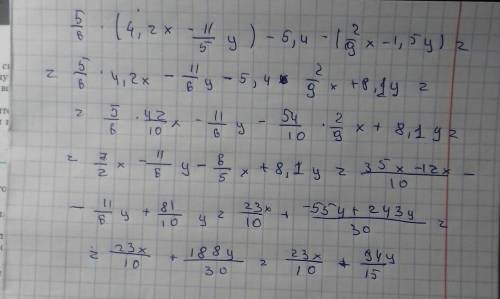 5/6 · (4,2x - 11/5 y) - 5,4 - (2/9 x - 1,5y) =
= 5/6 · 4,2x - 11/6 y - 5,4 · 2/9 x + 8,1y =
= 5/6 · 42/10 x - 11/6 y - 54/10 · 2/9 x + 8,1y =
= 7/2 x - 11/6 y - 6/5 x + 8,1y = (35x - 12x)/10 -
- 11/6 y + 81/10 y = 23x/10 + (-55y + 243y)/30 =
= 23x/10 + 188y/30 = 23x/10 + 94y/15